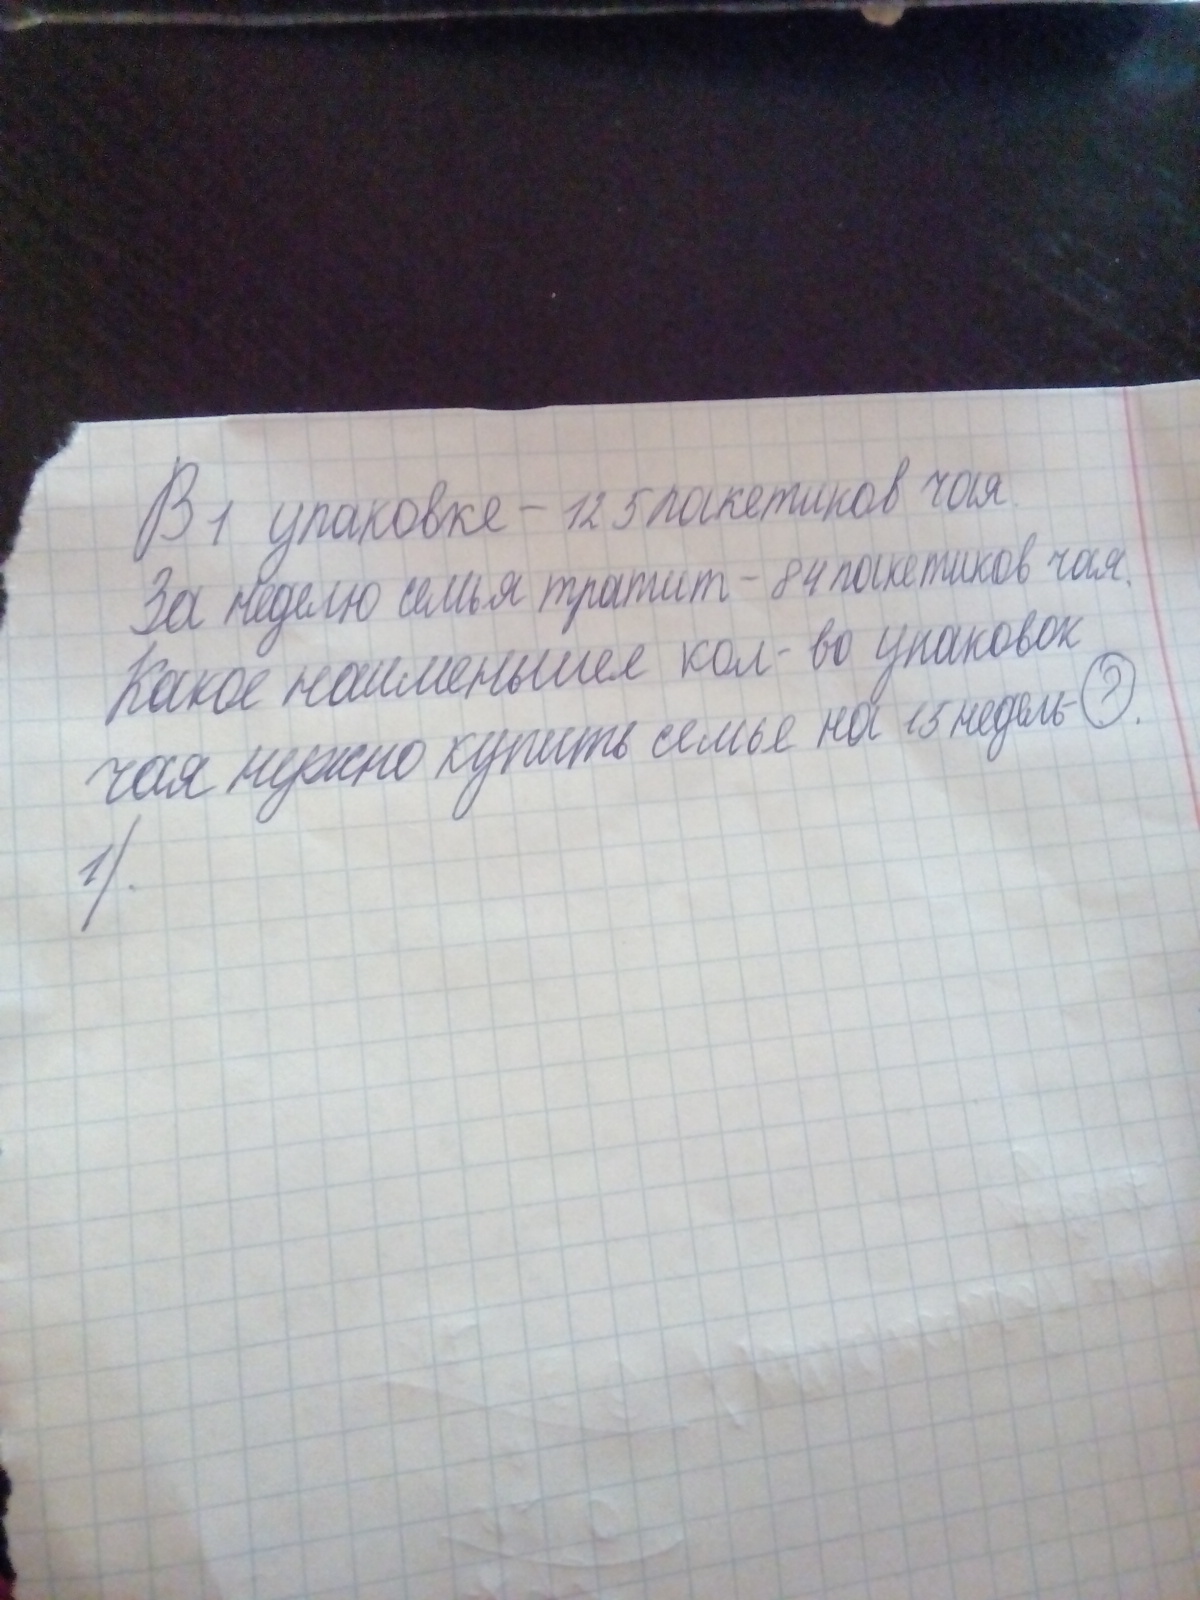 В 1 упаковке - 125 пакетиков чая.
За неделю семья тратит - 84 пакетиков чая.
Какое наименьшее кол-во упаковок
чая нужно купить семье на 15 недель-?.
1).